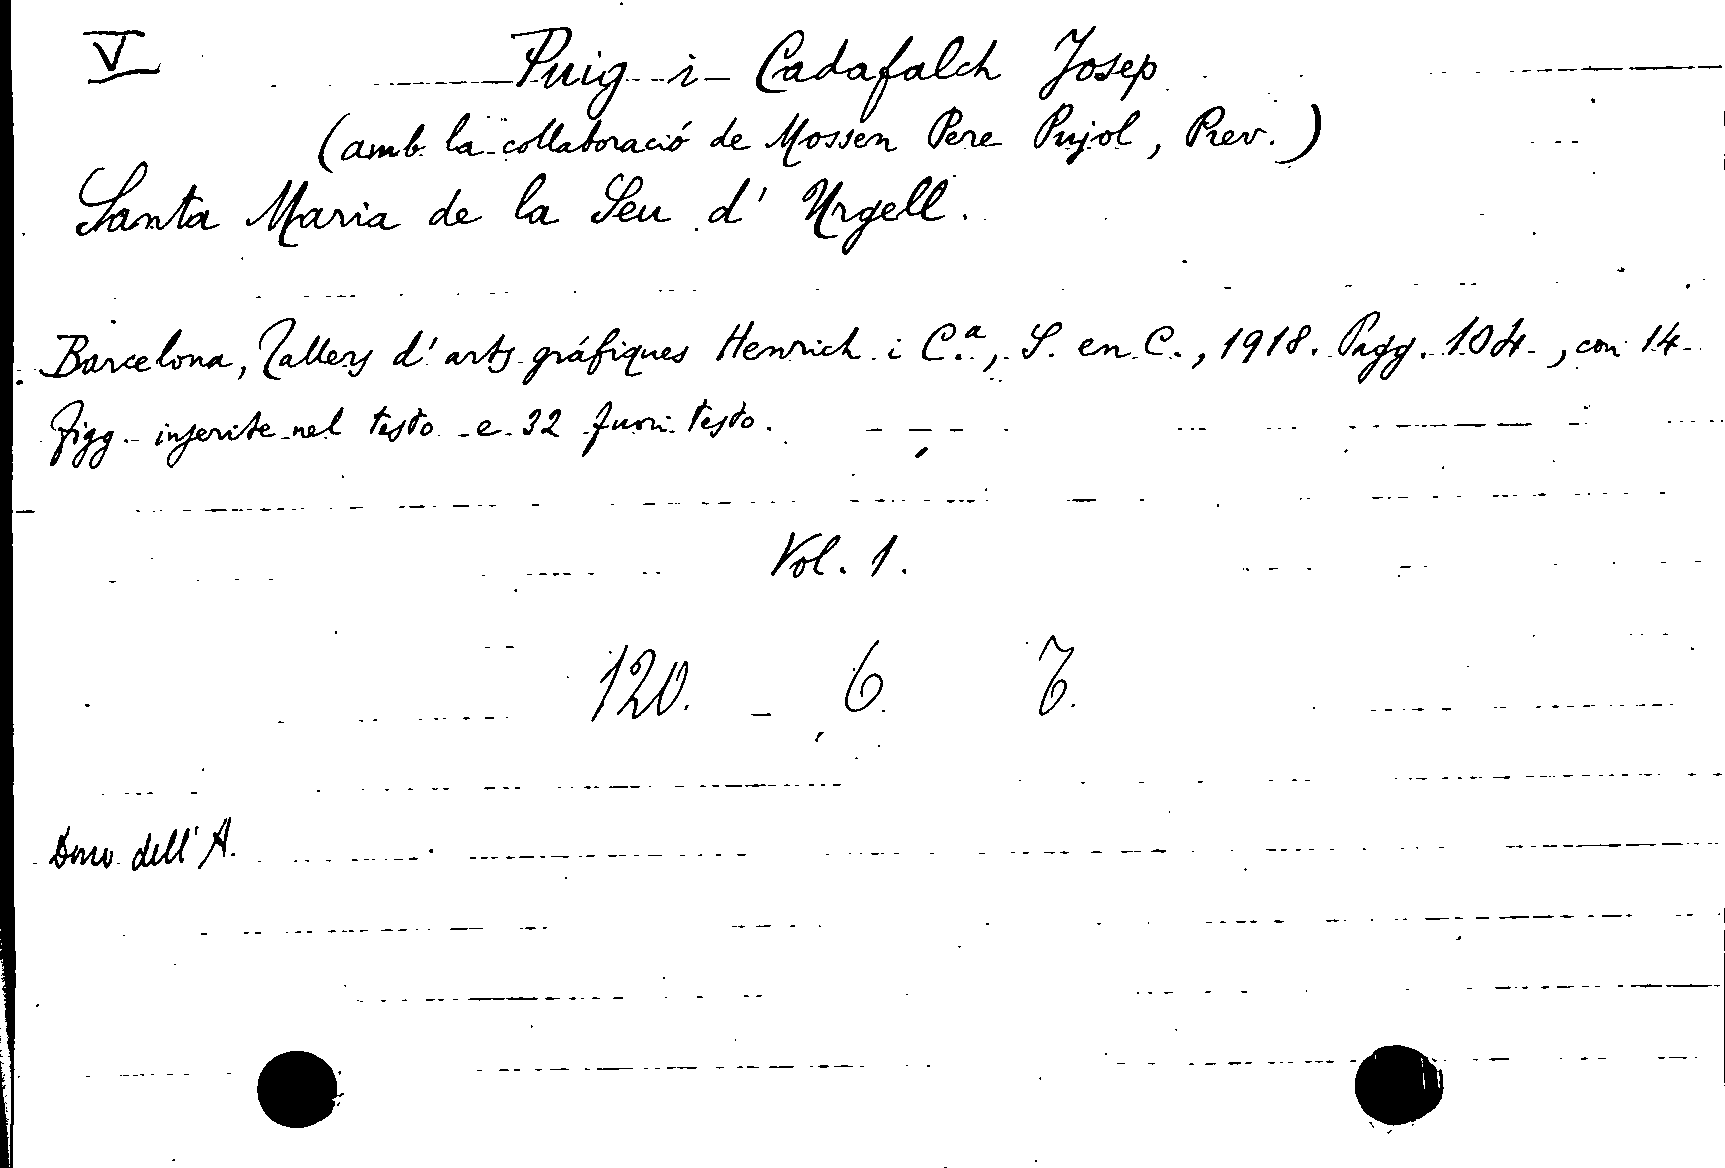 V
Puig i Cadafalch Josep
(amb la collaboració de Mossen Pere Pujol, Prev.)
Santa Maria de la Seu d' Urgell.
Barcelona, Tallers d'arts gráfiques Henrich i C.ª, S. en C., 1918. Pagg. 104, con 14
figg. inserite nel testo e 32 fuori testo.
Vol. 1.
120. 6. 7.
Dono dell'A.